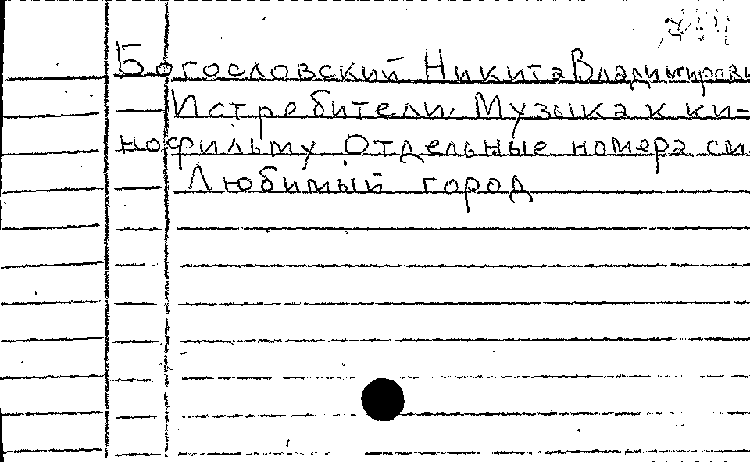 Богословский Никита Владимирови
Истребители. Музыка к ки=
нофильму Отдельные номера см.
Любимый город